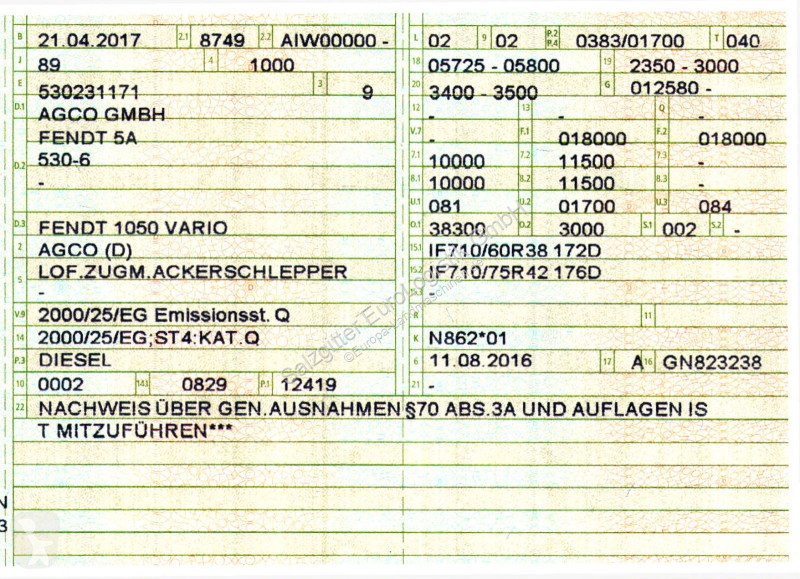 B 21.04.2017 2.1 8749 2.2 AIW00000 -
J 89 4 1000
E 530231171 3 9
D.1 AGCO GMBH
FENDT 5A
D.2 530-6
-
D.3 FENDT 1050 VARIO
2 AGCO (D)
5 LOF.ZUGM.ACKERSCHLEPPER
-
V.9 2000/25/EG Emissionsst. Q
14 2000/25/EG;ST4:KAT.Q
P.3 DIESEL
10 0002 14.1 0829 P.1 12419
L 02 9 02 P.2 P.4 0383/01700 T 040
18 05725 - 05800 19 2350 - 3000
20 3400 - 3500 G 012580 -
12 - 13 - Q -
V.7 - F.1 018000 F.2 018000
7.1 10000 7.2 11500 7.3 -
8.1 10000 8.2 11500 8.3 -
U.1 081 U.2 01700 U.3 084
O.1 38300 O.2 3000 S.1 002 S.2 -
15.1 IF710/60R38 172D
15.2 IF710/75R42 176D
15.3 -
R 11
K N862*01
6 11.08.2016 17 A 16 GN823238
21 -
22 NACHWEIS ÜBER GEN.AUSNAHMEN §70 ABS.3A UND AUFLAGEN IS
T MITZUFÜHREN***
N
3